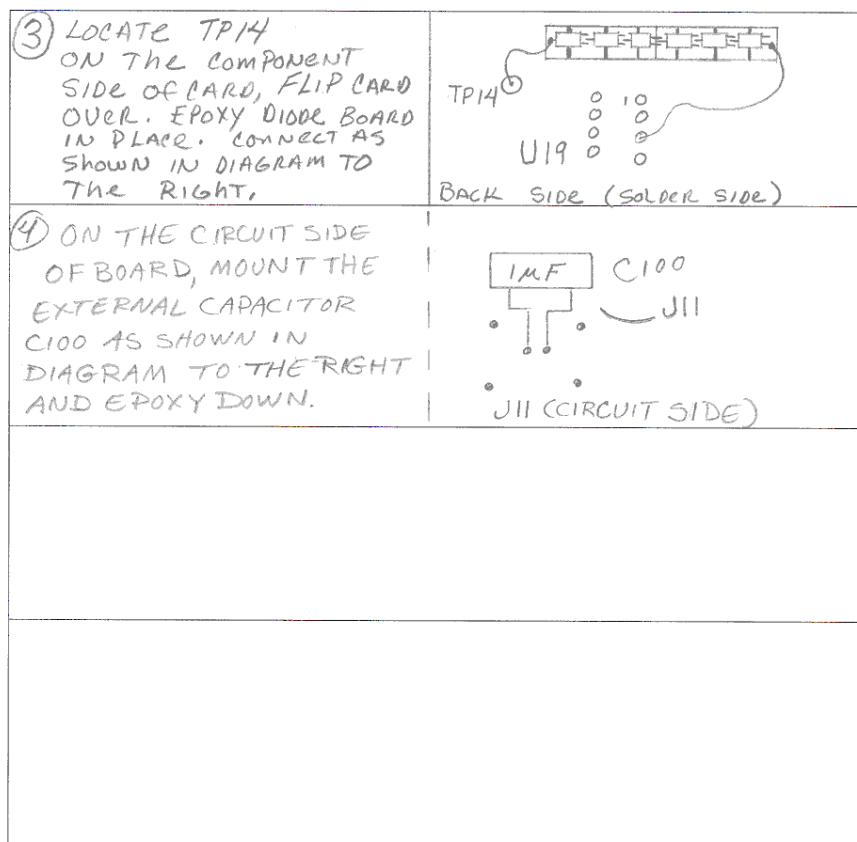 3 LOCATE TP14
ON The COMPONENT
SIDE OF CARD, FLIP CARD
OVER. EPOXY DIODE BOARD
IN PLACE. CONNECT AS
Shown IN DIAGRAM TO
The RIGHT.
TP14
1
U19
BACK SIDE (SOLDER SIDE)
4 ON THE CIRCUIT SIDE
OF BOARD, MOUNT THE
EXTERNAL CAPACITOR
C100 AS SHOWN IN
DIAGRAM TO THE RIGHT
AND EPOXY DOWN.
1MF C100
J11
J11 (CIRCUIT SIDE)